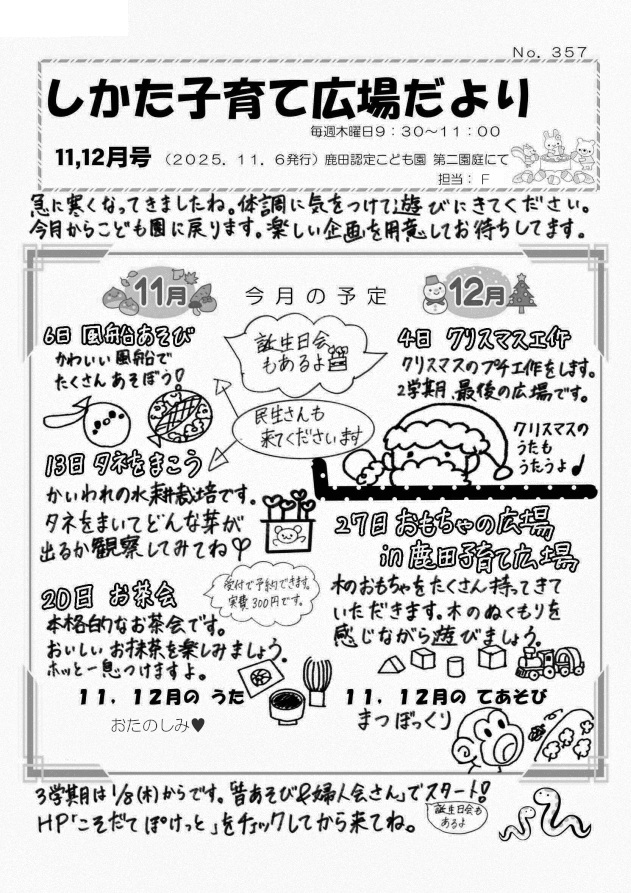 No．357
しかた子育て広場だより
毎週木曜日9：30～11：00
11,12月号 （2025．11．6発行）鹿田認定こども園 第二園庭にて
担当：F
急に寒くなってきましたね。体調に気をつけて遊びにきてください。
今月からこども園に戻ります。楽しい企画を用意してお待ちしてます。
11月 今月の予定 12月
6日 風船あそび
かわいい風船で
たくさんあそぼう！
誕生日会
もあるよ
民生さんも
来てくださいます
13日 タネをまこう
かいわれの水耕栽培です。
タネをまいてどんな芽が
出るか観察してみてね♡
20日 お茶会
受付で予約できます。
実費300円です。
本格的なお茶会です。
おいしいお抹茶を楽しみましょう。
ホッと一息つけますよ。
4日 クリスマス工作
クリスマスのプチ工作をします。
2学期、最後の広場です。
クリスマスの
うたも
うたうよ♪
27日 おもちゃの広場
in 鹿田子育て広場
木のおもちゃをたくさん持ってきて
いただきます。木のぬくもりを
感じながら遊びましょう。
11，12月の うた
おたのしみ♥
11，12月の てあそび
まつぼっくり
3学期は1/8(木)からです。「昔あそび&婦人会さん」でスタート！
誕生日会も
あるよ
HP「こそだて ぽけっと」をチェックしてから来てね。